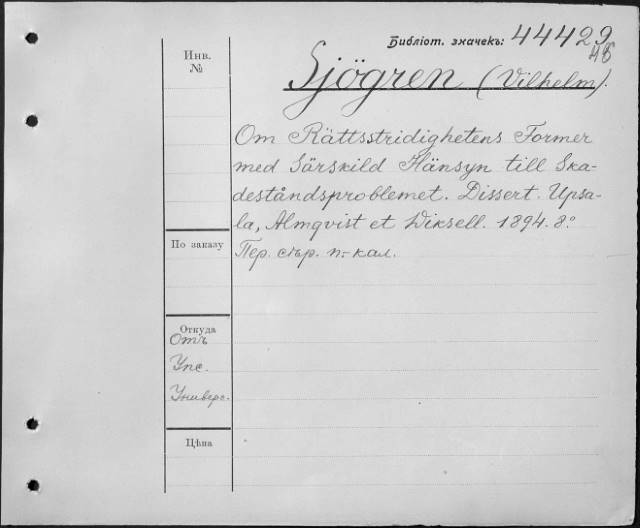 Библіот. значекъ: 44429
Инв.
№
Sjögren (Vilhelm).
Om Rättsstridighetens Former
med Särskild Hänsyn till Ska-
deståndsproblemet. Dissert. Upsa-
la, Almqvist et Wiksell. 1894. 8.º
По заказу
Пер. стр. п.-кал.
Откуда
Отъ
Упс.
Универс.
Цѣна